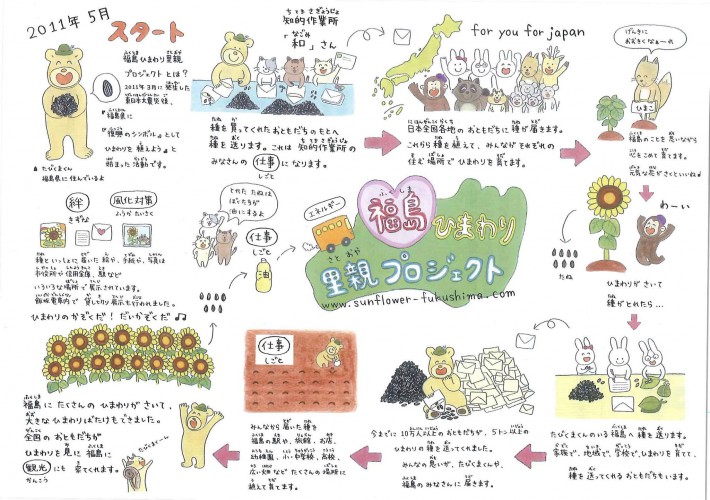 2011年 5月
スタート
福島ひまわり里親
プロジェクトとは?
2011年3月に発生した
東日本大震災後、
福島県に
『復興のシンボル』として
ひまわりを植えよう』と
始まった活動です。
▲たびくまくん
福島県に住んでいるよ
ちてきさぎょうじょ
知的作業所
なごみ
「和」さん
種を育ててくれたおともだちのもとへ
種を送ります。これは知的作業所の
みなさんの仕事になります。
しごと
for you for japan
にほんぜんこくかくち
日本全国各地のおともだちに種が届きます。
これから種を植えて、みんながそれぞれの
住む場所でひまわりを育てます。
げんきに
おおきくなぁーれ
ひまこ
福島のことを思いながら
心をこめて育てます。
元気な花がさくといいね♪
わーい
ひまわりがさいて
種がとれたら…
たね
絆
きずな
風化対策
ふうかたいさく
種といっしょに届いた絵や、手紙や、写真は
市役所や信用金庫、駅など
いろいろな場所で展示されています。
飯坂電車内で貸し切り展示も行われました。
とれたたねは
ぼくたちが
油にするよ
仕事
しごと
油
エネルギー
ふくしま
福島
ひまわり
さとおや
里親プロジェクト
www.sunflower-fukushima.com
ひまわりのかぞくだ!だいかぞくだ♪♫
福島にたくさんのひまわりがさいて、
大きなひまわりばたけもできました。
全国のおともだちが
ひまわりを見に福島に
観光にも来てくれます。
かんこう
たびくまくーん
仕事
しごと
みんなから届いた種を
福島の駅や、旅館、お店、
幼稚園、小・中学校、高校、
広い畑などたくさんの場所に
植えて育てます。
今までに10万人以上のおともだちが、5トン以上の
ひまわりの種を送ってくれました。
みんなの思いが、たびくまくんや、
福島のみなさんに届きます。
たびくまくんのいる福島へ種を送ります。
家族で、地域で、学校で、ひまわりを育て、
種を送ってくれるおともだちもいます。